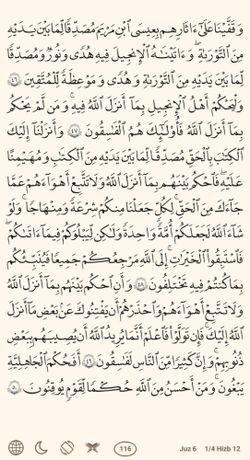 وَقَفَّيْنَا عَلَىٰٓ ءَاثَٰرِهِم بِعِيسَى ٱبْنِ مَرْيَمَ مُصَدِّقًا لِّمَا بَيْنَ يَدَيْهِ
مِنَ ٱلتَّوْرَىٰةِ ۖ وَءَاتَيْنَٰهُ ٱلْإِنجِيلَ فِيهِ هُدًى وَنُورٌ وَمُصَدِّقًا
لِّمَا بَيْنَ يَدَيْهِ مِنَ ٱلتَّوْرَىٰةِ وَهُدًى وَمَوْعِظَةً لِّلْمُتَّقِينَ ٤٦
وَلْيَحْكُمْ أَهْلُ ٱلْإِنجِيلِ بِمَآ أَنزَلَ ٱللَّهُ فِيهِ ۚ وَمَن لَّمْ يَحْكُم
بِمَآ أَنزَلَ ٱللَّهُ فَأُو۟لَٰٓئِكَ هُمُ ٱلْفَٰسِقُونَ ٤٧ وَأَنزَلْنَآ إِلَيْكَ
ٱلْكِتَٰبَ بِٱلْحَقِّ مُصَدِّقًا لِّمَا بَيْنَ يَدَيْهِ مِنَ ٱلْكِتَٰبِ وَمُهَيْمِنًا
عَلَيْهِ ۖ فَٱحْكُم بَيْنَهُم بِمَآ أَنزَلَ ٱللَّهُ ۖ وَلَا تَتَّبِعْ أَهْوَآءَهُمْ عَمَّا
جَآءَكَ مِنَ ٱلْحَقِّ ۚ لِكُلٍّ جَعَلْنَا مِنكُمْ شِرْعَةً وَمِنْهَاجًا ۚ وَلَوْ
شَآءَ ٱللَّهُ لَجَعَلَكُمْ أُمَّةً وَٰحِدَةً وَلَٰكِن لِّيَبْلُوَكُمْ فِى مَآ ءَاتَىٰكُمْ ۖ
فَٱسْتَبِقُوا۟ ٱلْخَيْرَٰتِ ۚ إِلَى ٱللَّهِ مَرْجِعُكُمْ جَمِيعًا فَيُنَبِّئُكُم
بِمَا كُنتُمْ فِيهِ تَخْتَلِفُونَ ٤٨ وَأَنِ ٱحْكُم بَيْنَهُم بِمَآ أَنزَلَ ٱللَّهُ
وَلَا تَتَّبِعْ أَهْوَآءَهُمْ وَٱحْذَرْهُمْ أَن يَفْتِنُوكَ عَنۢ بَعْضِ مَآ أَنزَلَ
ٱللَّهُ إِلَيْكَ ۖ فَإِن تَوَلَّوْا۟ فَٱعْلَمْ أَنَّمَا يُرِيدُ ٱللَّهُ أَن يُصِيبَهُم بِبَعْضِ
ذُنُوبِهِمْ ۗ وَإِنَّ كَثِيرًا مِّنَ ٱلنَّاسِ لَفَٰسِقُونَ ٤٩ أَفَحُكْمَ ٱلْجَٰهِلِيَّةِ
يَبْغُونَ ۚ وَمَنْ أَحْسَنُ مِنَ ٱللَّهِ حُكْمًا لِّقَوْمٍ يُوقِنُونَ ٥٠
116 Juz 6 1/4 Hizb 12